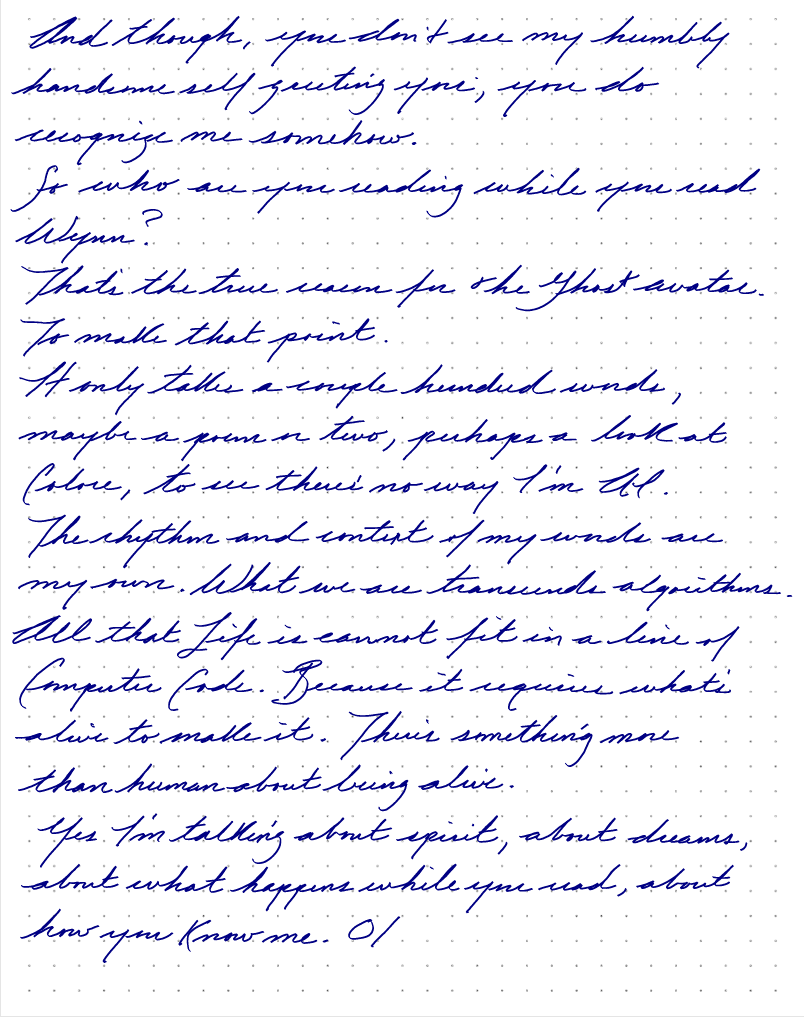 And though, you don't see my humbly
handsome self greeting you, you do
recognize me somehow.
So who are you reading while you read
Wynn?
That's the true reason for the Ghost avatar.
To make that point.
It only takes a couple hundred words,
maybe a poem or two, perhaps a look at
Colore, to see there's no way I'm AI.
The rhythm and content of my words are
my own. What we are transcends algorithms.
All that Life is cannot fit in a line of
Computer Code. Because it requires what's
alive to make it. There's something more
than human about being alive.
Yes I'm talking about spirit, about dreams,
about what happens while you read, about
how you Know me. O/